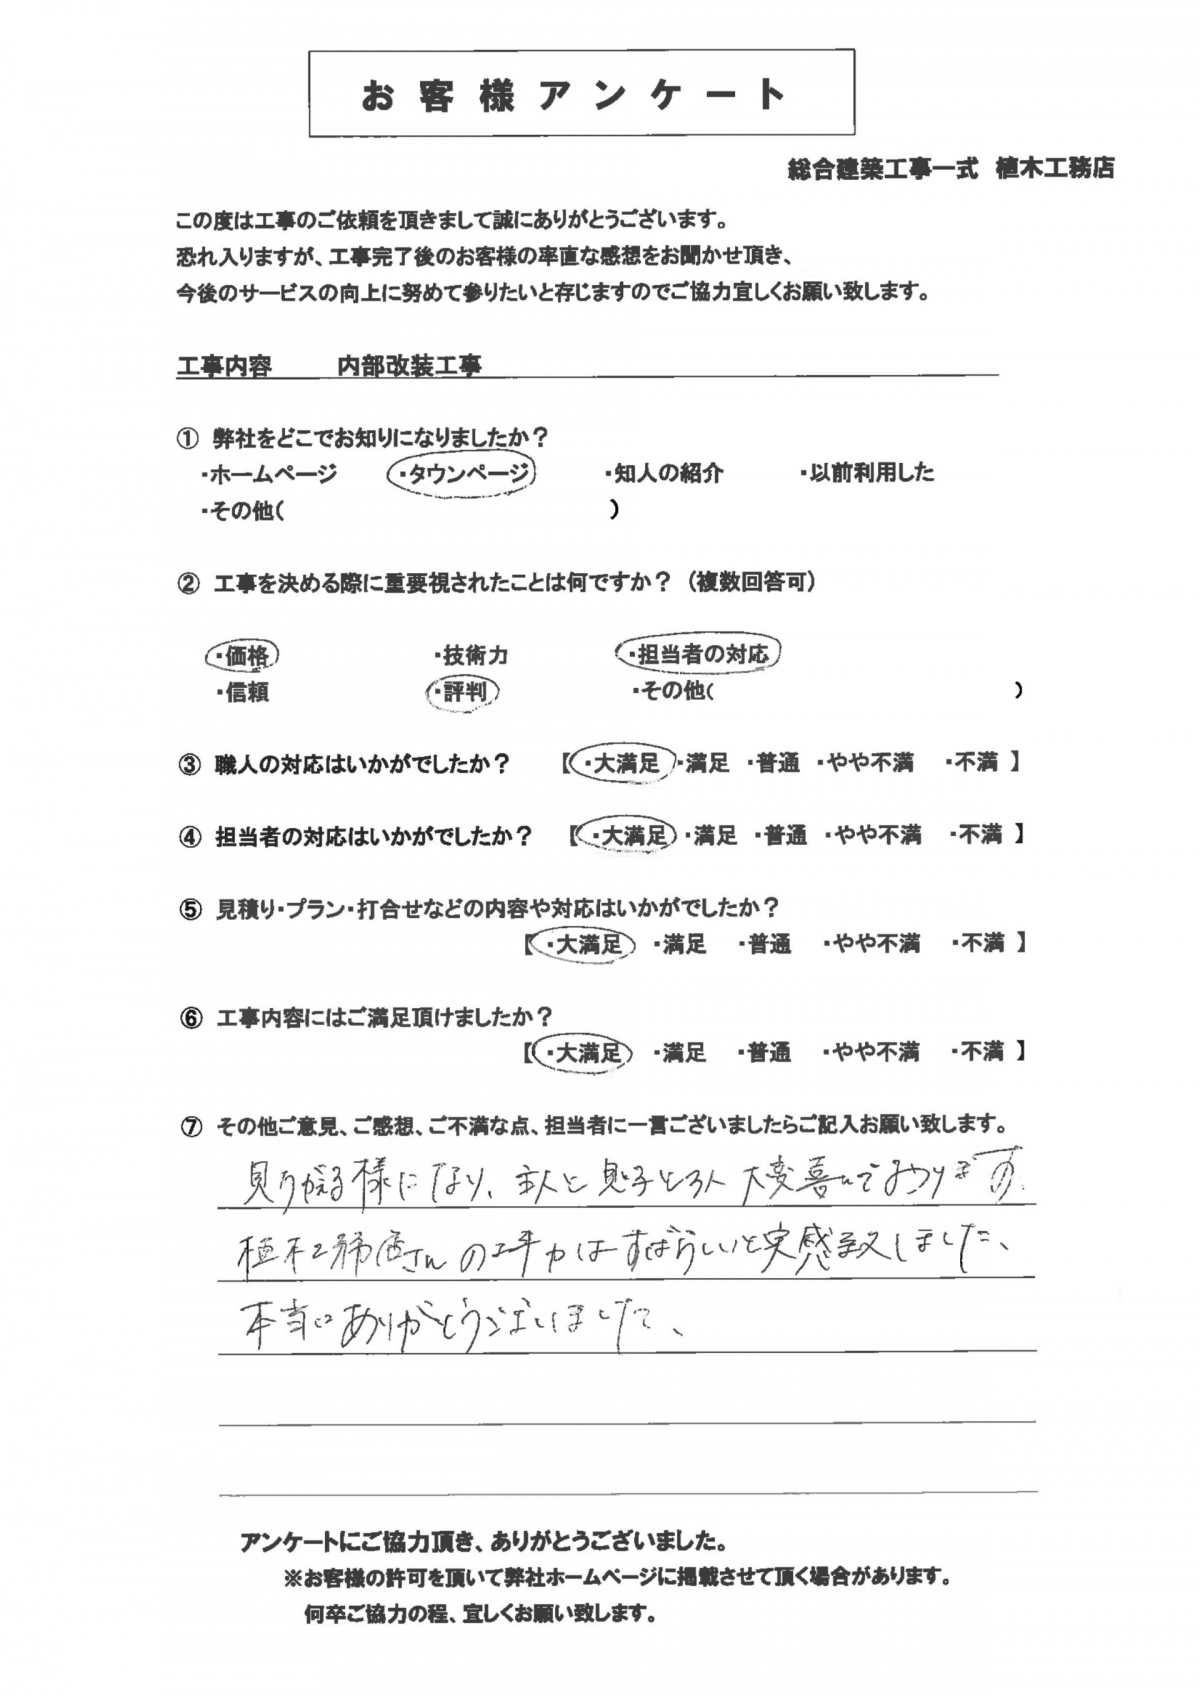 お客様アンケート
総合建築工事一式 植木工務店
この度は工事のご依頼を頂きまして誠にありがとうございます。
恐れ入りますが、工事完了後のお客様の率直な感想をお聞かせ頂き、
今後のサービスの向上に努めて参りたいと存じますのでご協力宜しくお願い致します。
工事内容 内部改装工事
① 弊社をどこでお知りになりましたか？
・ホームページ ・タウンページ ・知人の紹介 ・以前利用した
・その他( )
② 工事を決める際に重要視されたことは何ですか？（複数回答可）
・価格 ・技術力 ・担当者の対応
・信頼 ・評判 ・その他( )
③ 職人の対応はいかがでしたか？ 【 ・大満足 ・満足 ・普通 ・やや不満 ・不満 】
④ 担当者の対応はいかがでしたか？ 【 ・大満足 ・満足 ・普通 ・やや不満 ・不満 】
⑤ 見積り・プラン・打合せなどの内容や対応はいかがでしたか？
【 ・大満足 ・満足 ・普通 ・やや不満 ・不満 】
⑥ 工事内容にはご満足頂けましたか？
【 ・大満足 ・満足 ・普通 ・やや不満 ・不満 】
⑦ その他ご意見、ご感想、ご不満な点、担当者に一言ございましたらご記入お願い致します。
見ちがえる様になり、主人と息子と3人 大変喜んでおります。
植木工務店さんの工事力はすばらしいと実感致しました、
本当にありがとうございました、
アンケートにご協力頂き、ありがとうございました。
※お客様の許可を頂いて弊社ホームページに掲載させて頂く場合があります。
何卒ご協力の程、宜しくお願い致します。